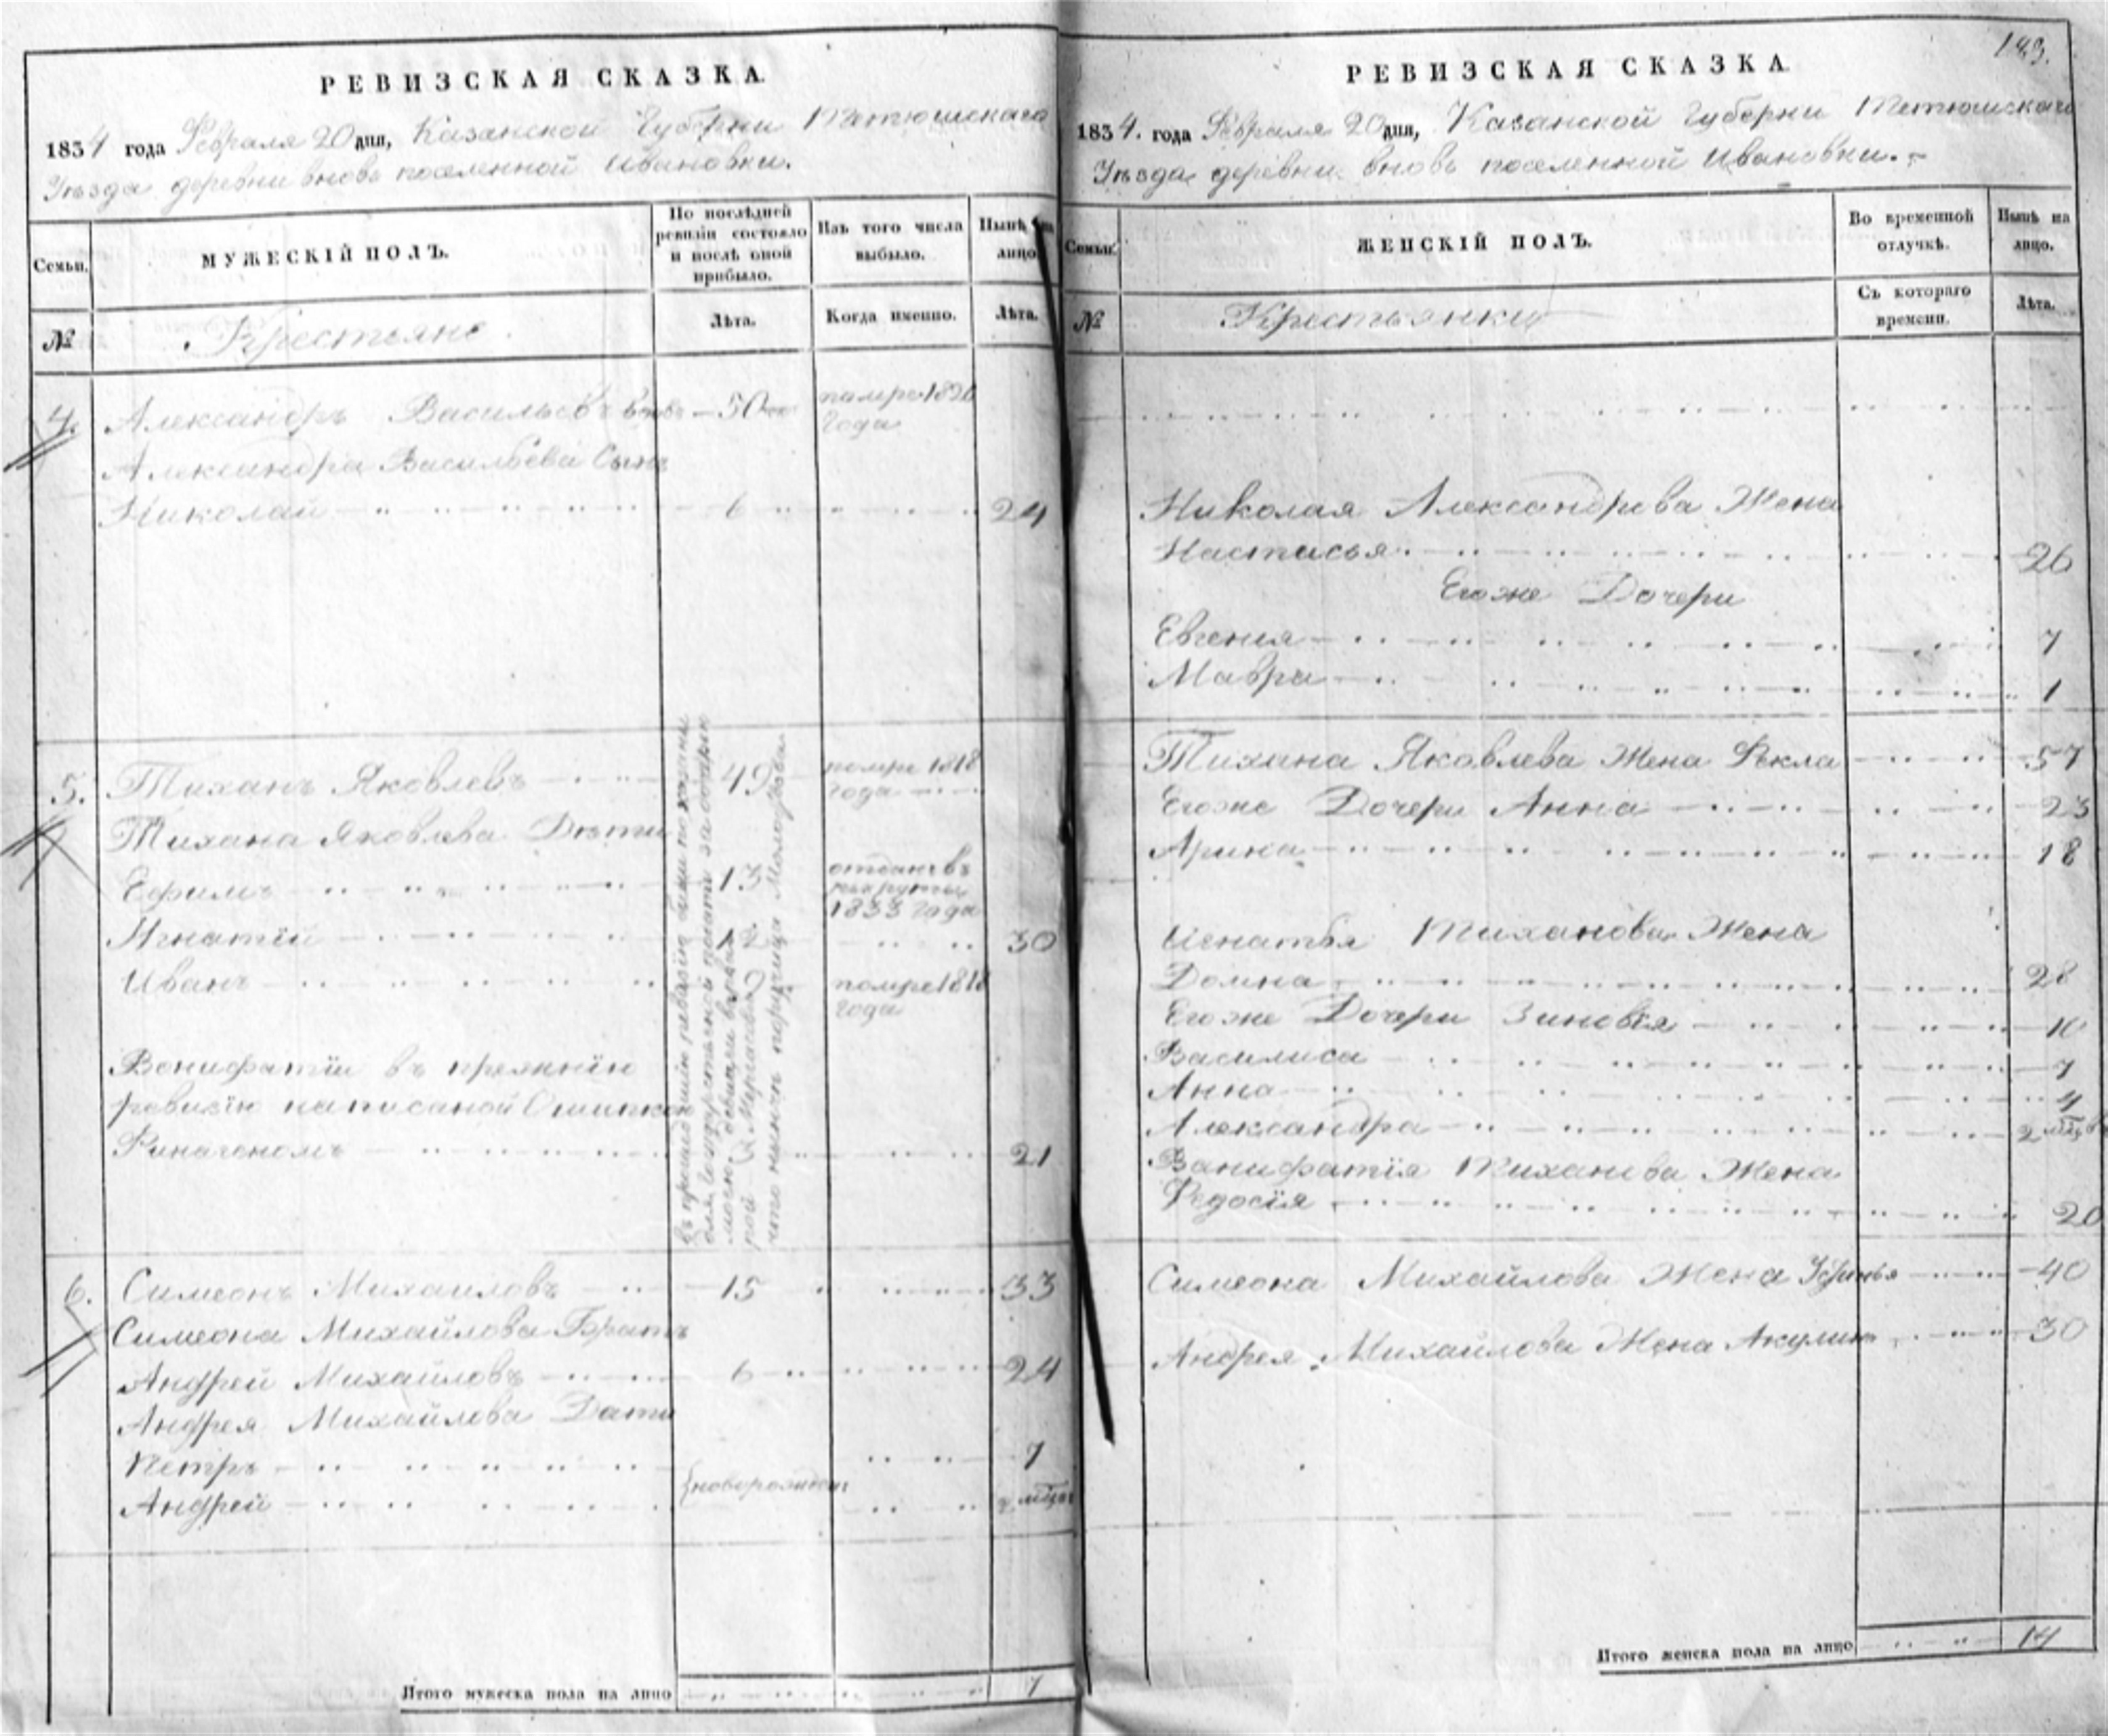 РЕВИЗСКАЯ СКАЗКА.
1834 года Февраля 20 дня, Казанской Губерни Тетюшскаго
Уѣзда деревни вновь поселенной Ивановки.
Семьи.
МУЖЕСКІЙ ПОЛЪ.
По послѣдней
ревизіи состояло
и послѣ оной
прибыло.
Изъ того числа
выбыло.
Нынѣ на
лицо
№
Крестьяне.
Лѣта.
Когда именно.
Лѣта.
4. Александръ Васильевъ — 50 помре 1820
года
Александра Васильева Сынъ
Николай 6 24
5. Тиханъ Яковлевъ 49 помре 1818
года
Тихана Яковлева Дѣти
Ефимъ 13 отданъ въ
рекруты
1833 года
Игнатій 12 30
Иванъ 9 помре 1818
года
Вонифатіи въ прежнію
ревизію написаной Ошипкой
Финагеномъ 21
6. Симеонъ Михаиловъ 15 33
Симеона Михайлова Братъ
Андрей Михаиловъ 6 24
Андрея Михайлова Дѣти
Петръ 7
Андрей
Итого мужеска пола на лицо 7
183.
РЕВИЗСКАЯ СКАЗКА
1834. года Февраля 20 дня, Казанской Губерни Тетюшскаго
Уѣзда деревни вновь поселенной Ивановки.
Семьи.
ЖЕНСКІЙ ПОЛЪ.
Во временной
отлучкѣ.
Нынѣ на
лицо.
№
Крестьянки
Съ котораго
времени.
Лѣта.
Николая Александрова Жена
Настасья 26
Егоже Дочери
Евгения 7
Мавра 1
Тихана Яковлева Жена Фѣкла 57
Егоже Дочери Анна 23
Арина 18
Игнатья Тиханова Жена
Домна 28
Егоже Дочери Зиновія 10
Василиса 7
Анна 4
Александра 2
Ванифатія Тиханова Жена
Федосія 20
Симеона Михайлова Жена Устинья 40
Андрея Михайлова Жена Акулина 30
Итого женска пола на лицо 14